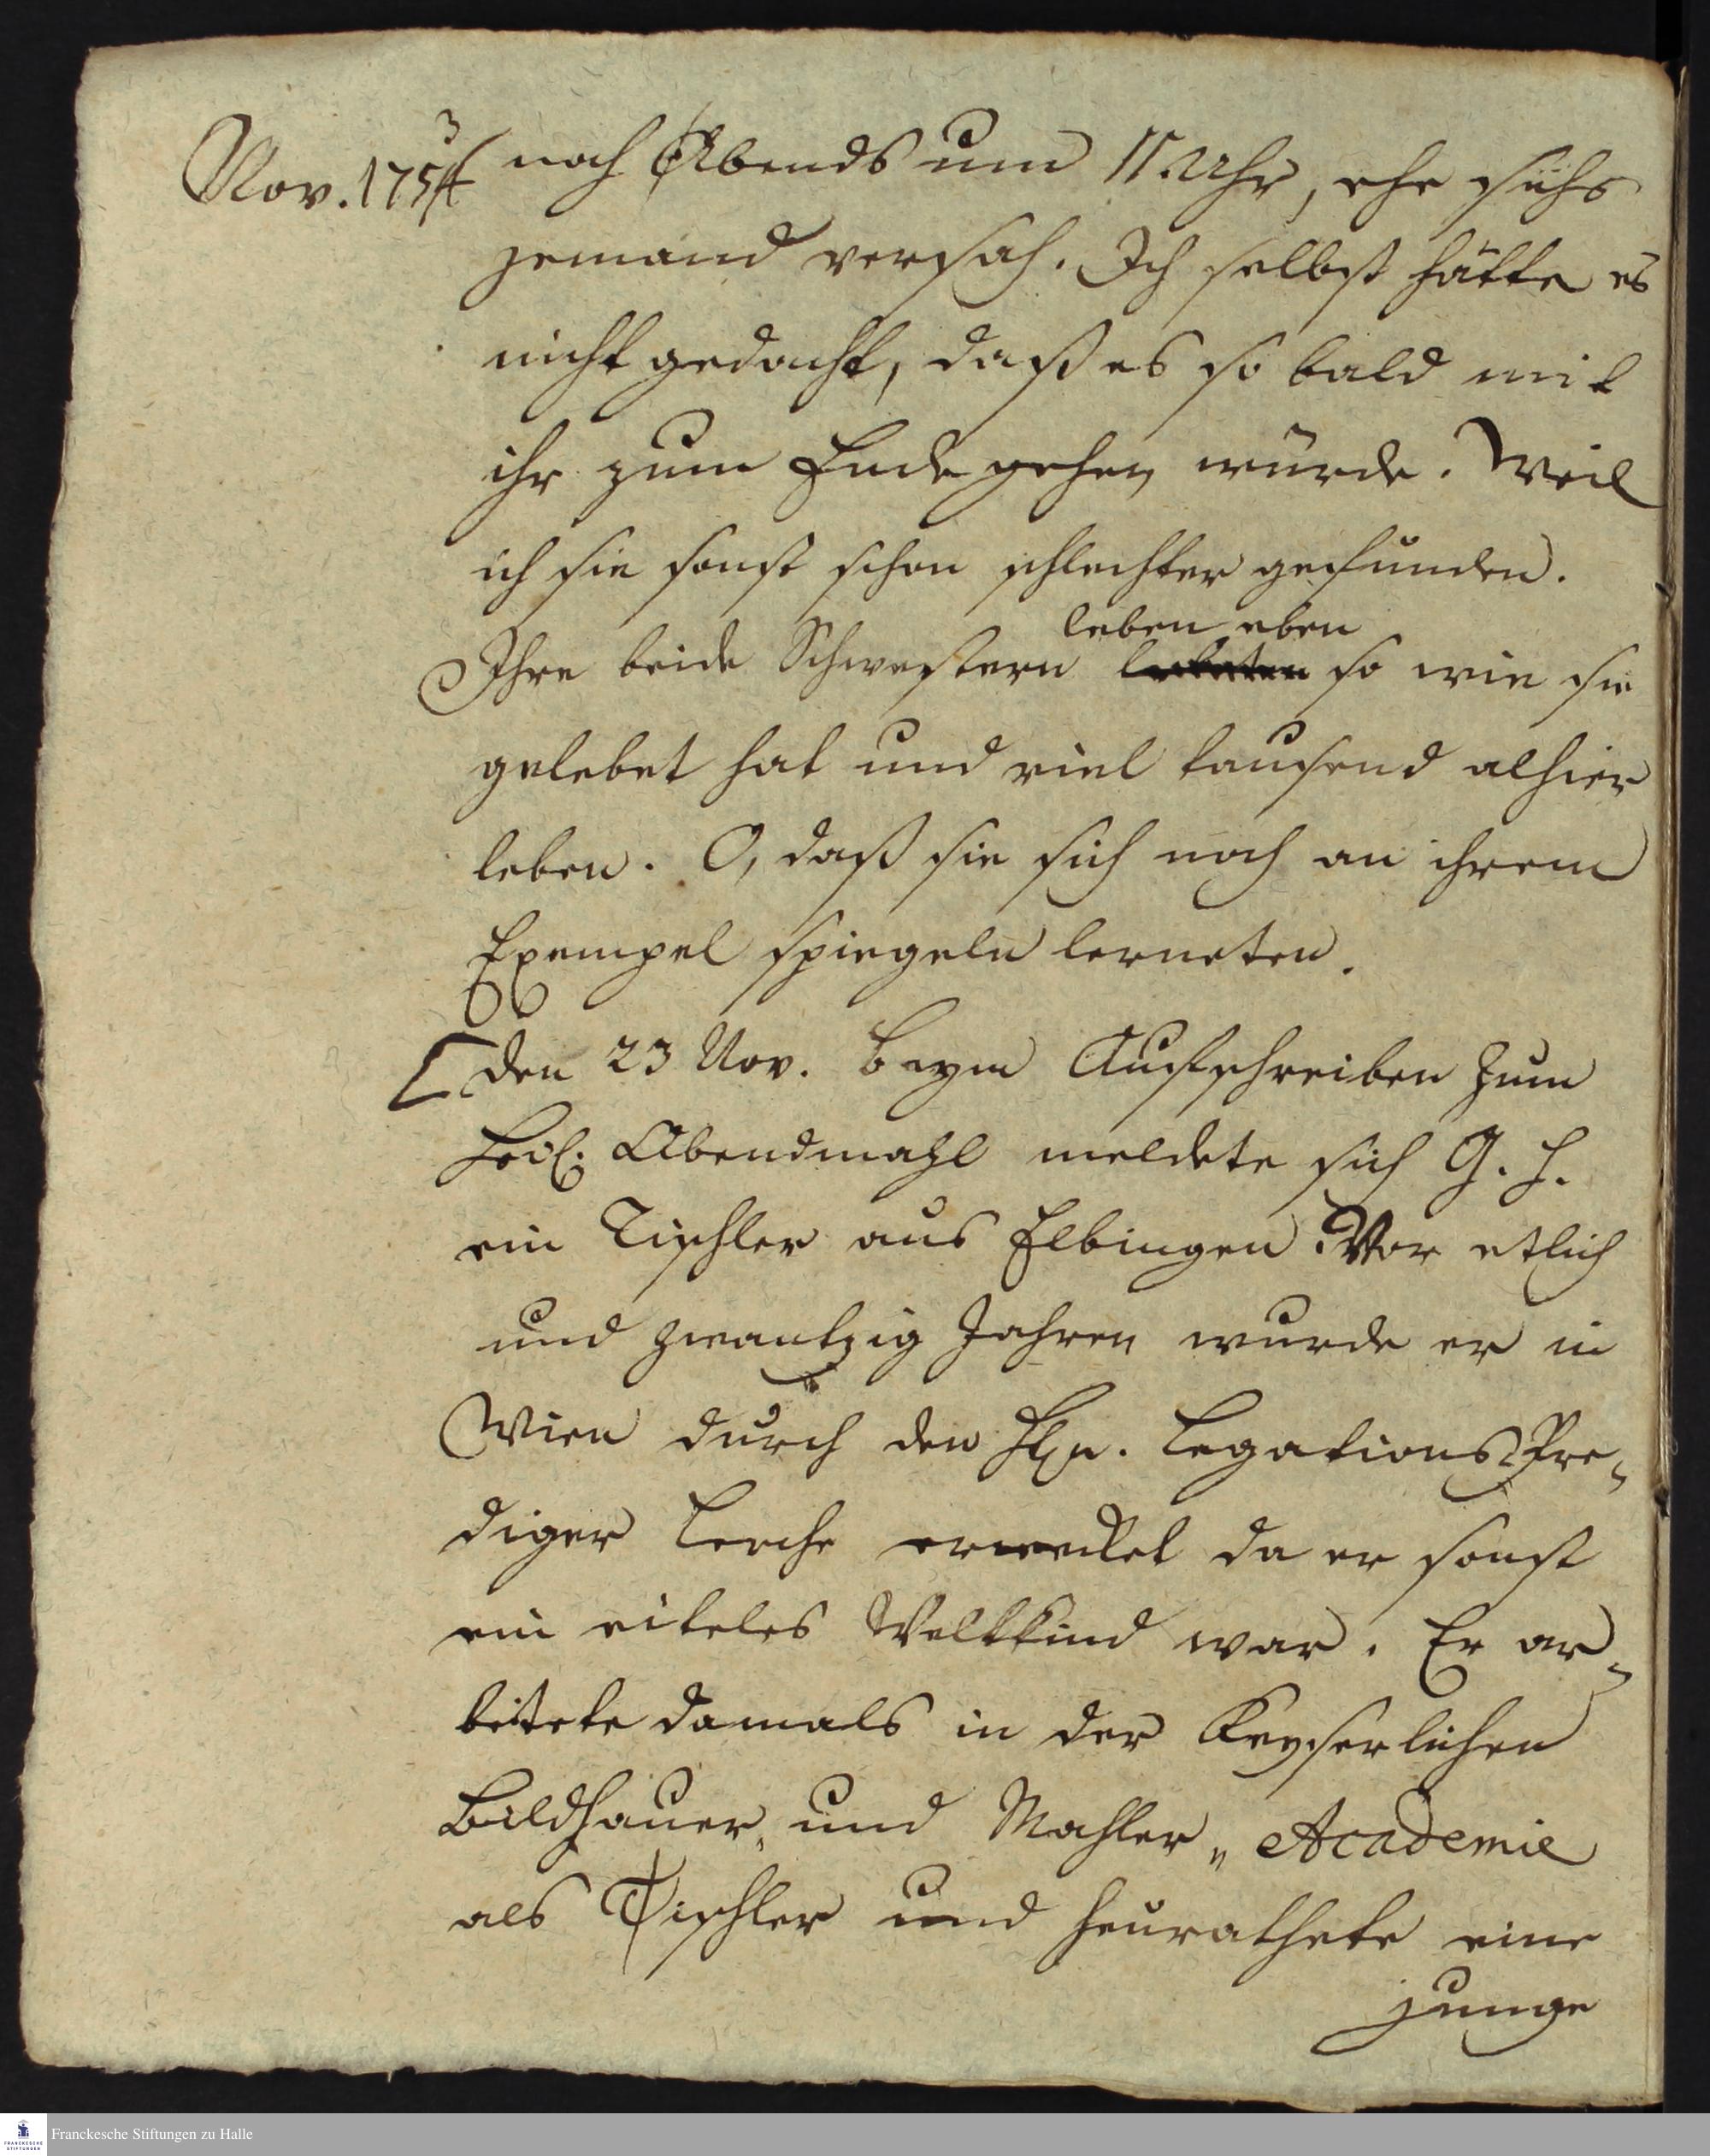 Nov. 1753
noch Abends um 11. Uhr, ehe sichs
jemand versah. Ich selbst hätte es
nicht gedacht, daß es so bald mit
ihr zum Ende gehen würde. Weil
ich sie sonst schon schlechter gefunden.
leben eben
Ihre beide Schwestern lebeten so wie sie
gelebet hat und viel tausend alhier
leben. O, daß sie sich noch an ihrem
Exempel spiegeln lerneten.
[den 23 Nov. beym Aufschreiben zum
Heil. Abendmahl meldete sich G. H.
ein Tischler aus Elbingen. Vor etlich
und zwantzig Jahren wurde er in
Wien durch den Hln. Legations Pre-
diger Lerche erwecket da er sonst
ein eiteles Weltkind war. Er ar-
beitete damals in der Keyserlichen
Bildhauer- und Mahler- Academie
als Tischler und heurathete eine
junge
Franckesche Stiftungen zu Halle
FRANCKESCHE
STIFTUNGEN